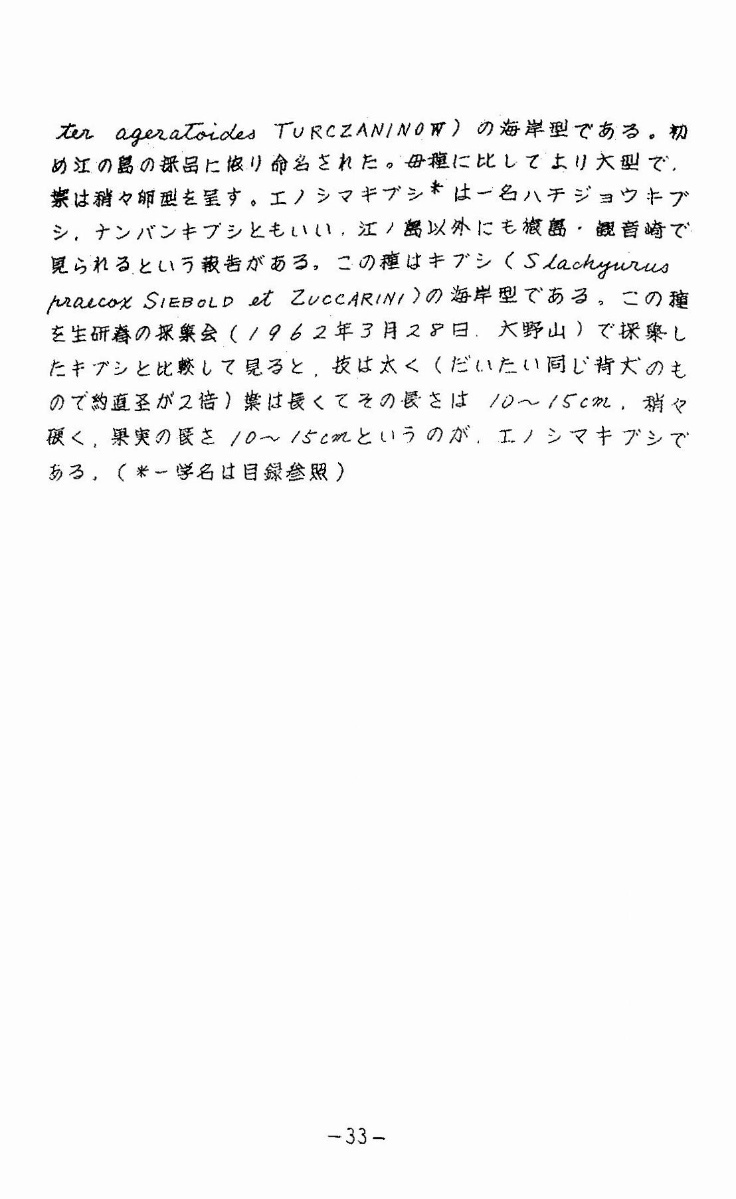 ter ageratoides TURCZANINOW）の海岸型である。初
め江の島の採品に依り命名された。母種に比してより大型で，
葉は稍々卵型を呈す。エノシマキブシ*は一名ハチジョウキブ
シ，ナンバンキブシともいい，江ノ島以外にも猿島・観音崎で
見られるという報告がある。この種はキブシ（Slachyurus
praecox SIEBOLD et ZUCCARINI）の海岸型である。この種
を生研春の採集会（1962年3月28日．大野山）で採集し
たキブシと比較して見ると，技は太く（だいたい同じ背丈のも
ので約直圣が2倍）葉は長くてその長さは 10〜15cm，稍々
硬く，果実の長さ10〜15cmというのが，エノシマキブシで
ある。（*一学名は目録参照）
-33-